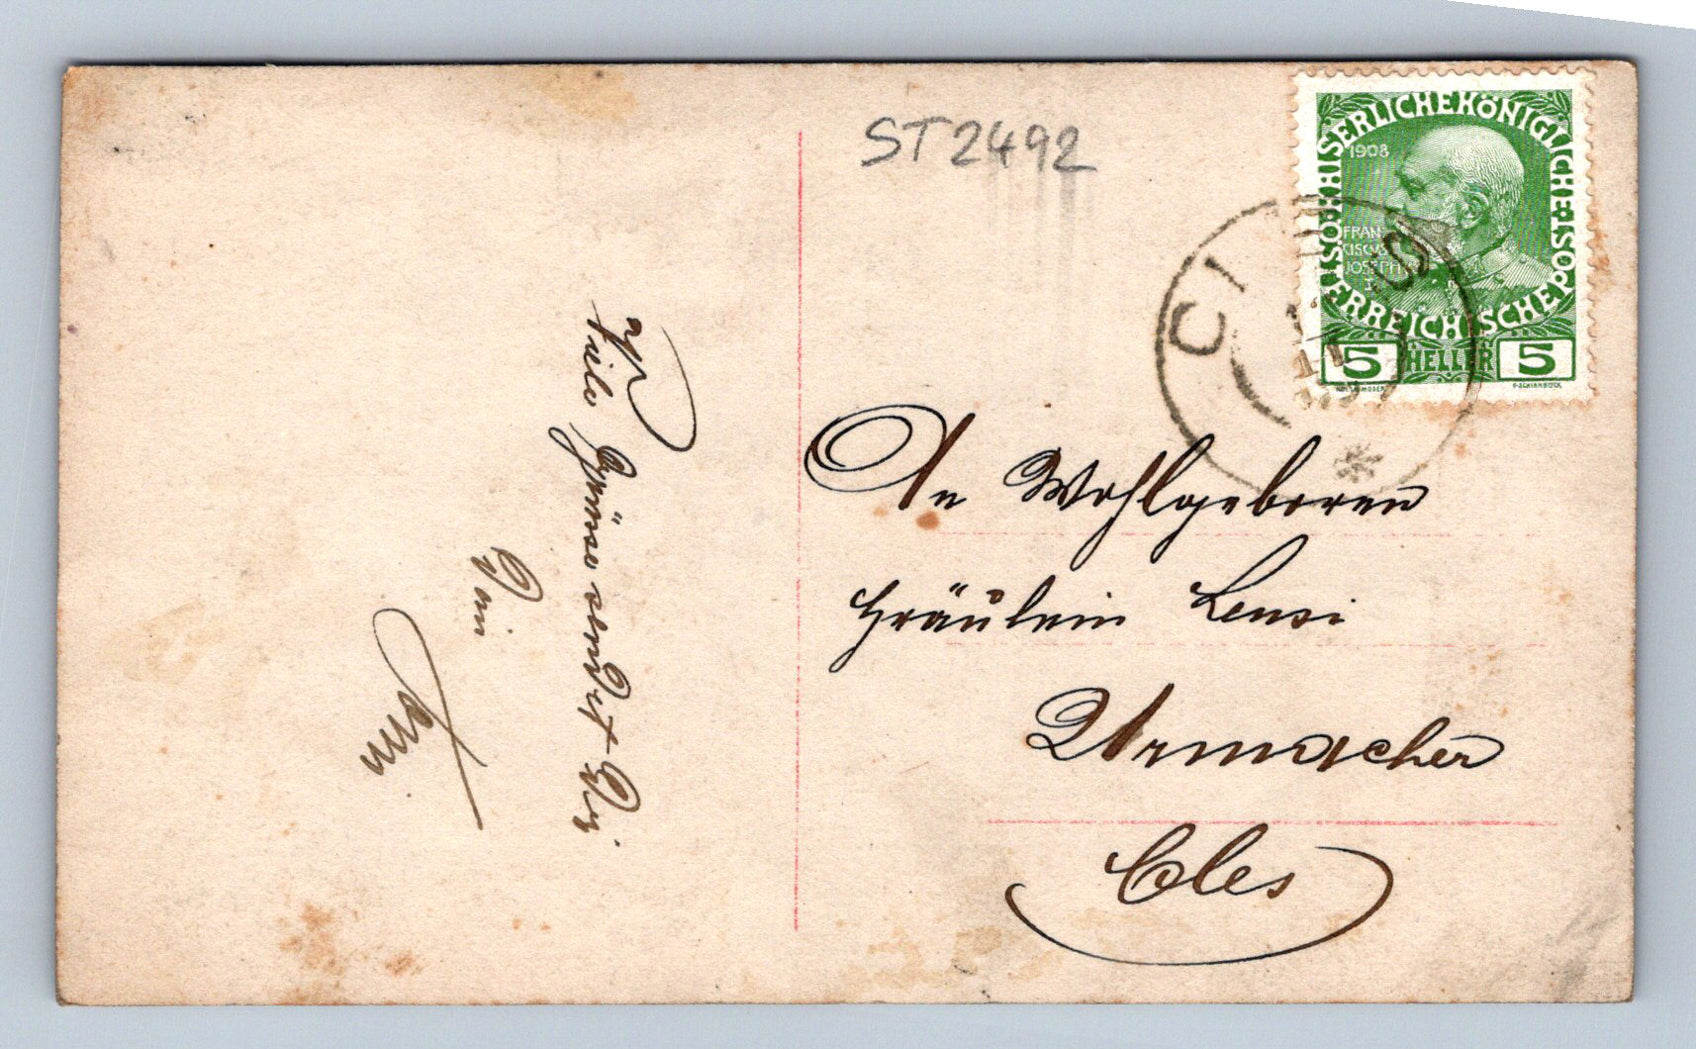 ST2492
KAISERLICHE KÖNIGLICHE ÖSTERREICHISCHE POST
1908
FRAN
CISCVS
JOSEPH
I
5 HELLER 5
CL S
Viele Grüsse sendet Dir
Dein
An Wohlgeboren
Fräulein Lensi
Urmacher
Cles